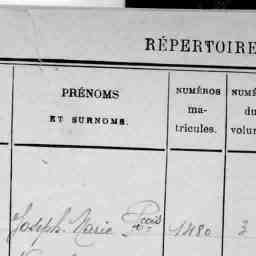 RÉPERTOIRE
PRÉNOMS
ET SURNOMS.
NUMÉROS
ma-
tricules.
NUMÉ
du
volum
Joseph Marie 1480 3